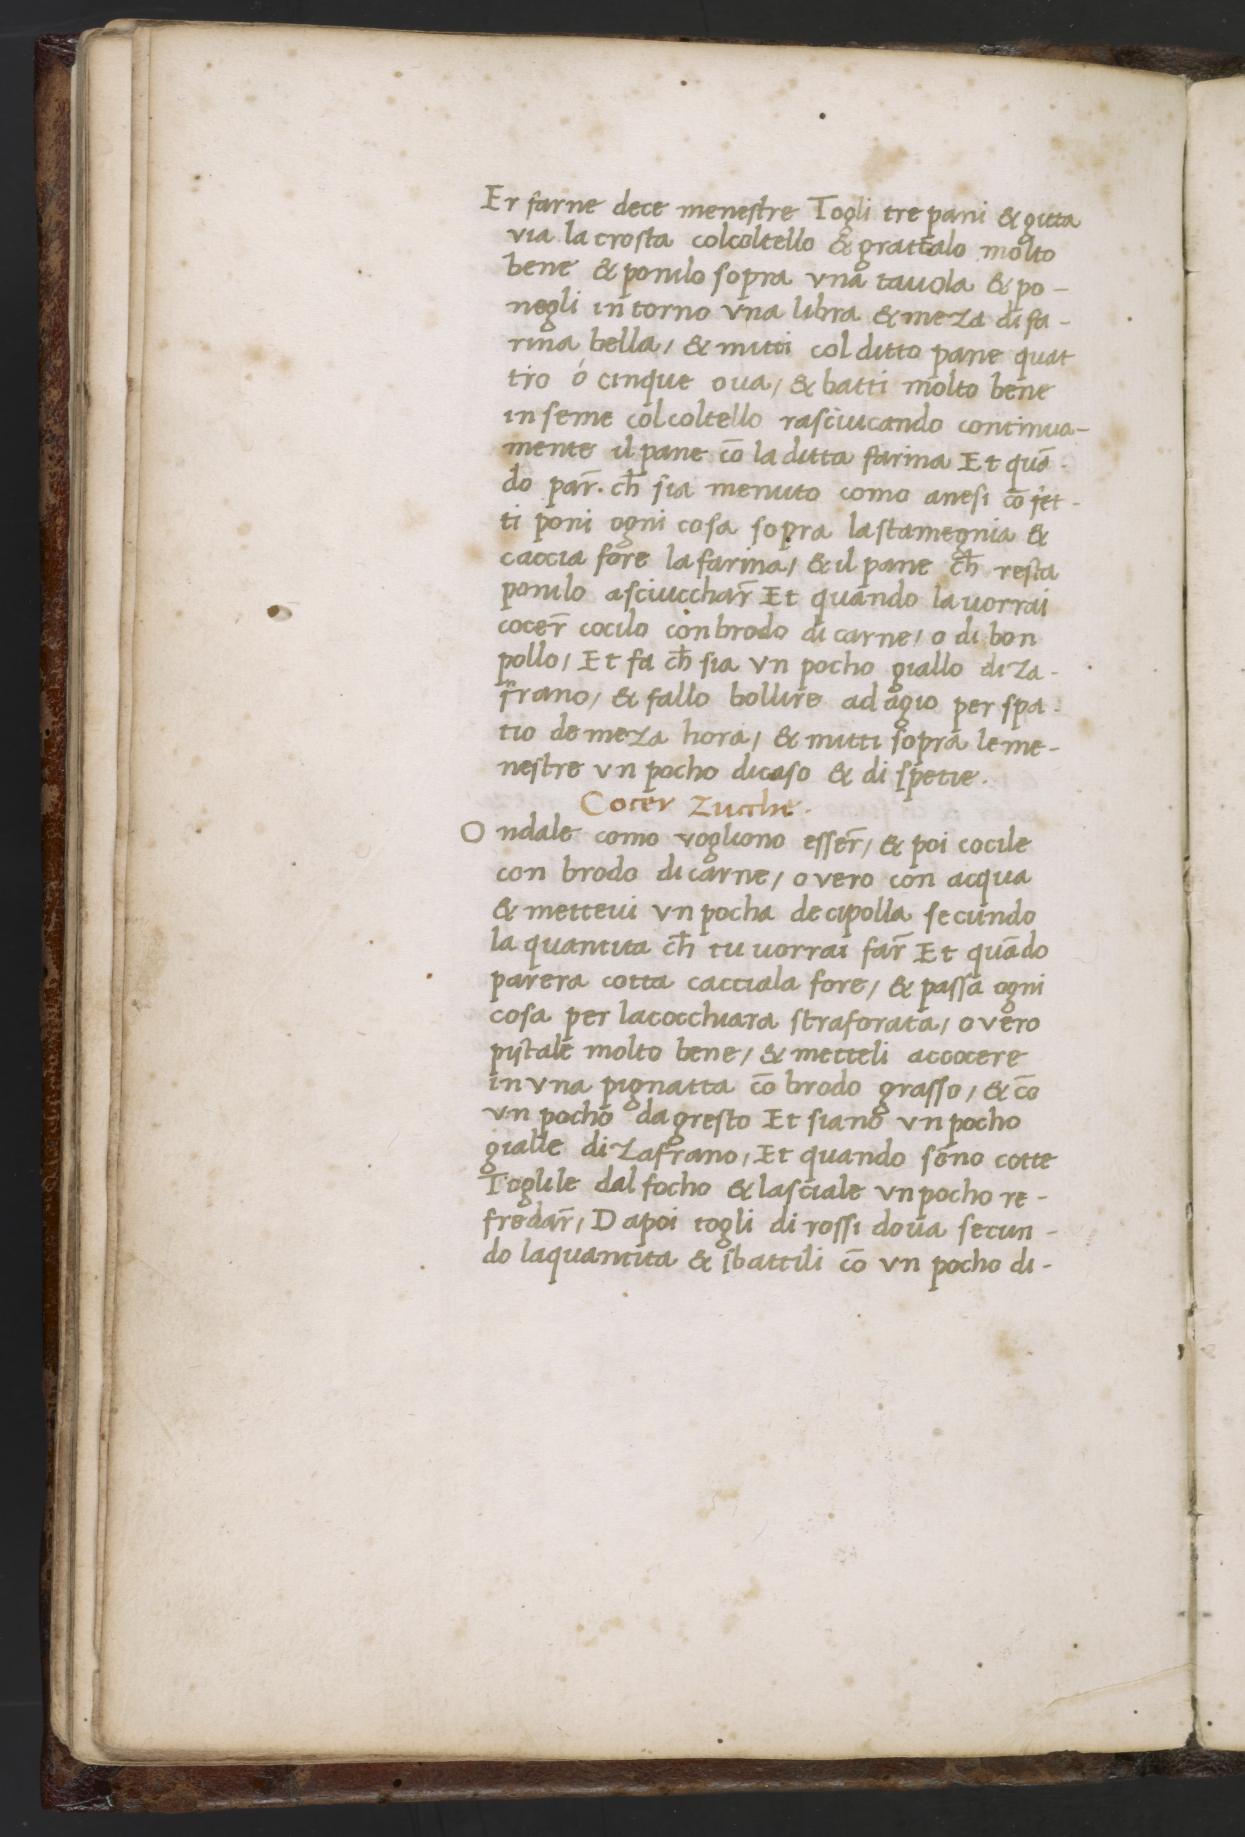 Er farne dece menestre Togli tre pani & gitta
via la crosta colcoltello & grattalo molto
bene & ponilo sopra vna tauola & po-
negli in torno vna libra & meza di fa-
rina bella, & mitti col ditto pane quat
tro ó cinque oua, & batti molto bene
inseme colcoltello rasciucando continua-
mente il pane cō la ditta farina Et quā-
do par̄. ch̄ sia menuto como anesi cō fet-
ti poni ogni cosa sopra la stamegnia &
caccia fore la farina, & il pane ch̄ resta
ponilo asciucchar̄ Et quando la uorrai
cocer̄ cocilo con brodo di carne, o di bon
pollo, Et fa ch̄ sia vn pocho giallo di za-
frano, & fallo bollire ad agio per spa-
tio de meza hora, & mitti sopra le me-
nestre vn pocho dicaso & di spetie.
Cocer Zucche.
O ndale como vogliono esser̄, & poi cocile
con brodo di carne, o vero con acqua
& metteui vn pocha de cipolla secundo
la quantita ch̄ tu uorrai far̄ Et quādo
parera cotta cacciala fore, & passa ogni
cosa per lacocchiara straforata, o vero
pistale molto bene, & metteli accocere
in vna pignatta cō brodo grasso, & cō
vn pocho dagresto Et siano vn pocho
gialle di zafrano, Et quando sono cotte
Toglile dal focho & lasciale vn pocho re-
fredar̄, Dapoi togli di rossi doua secun-
do laquantita & sbattili cō vn pocho di-